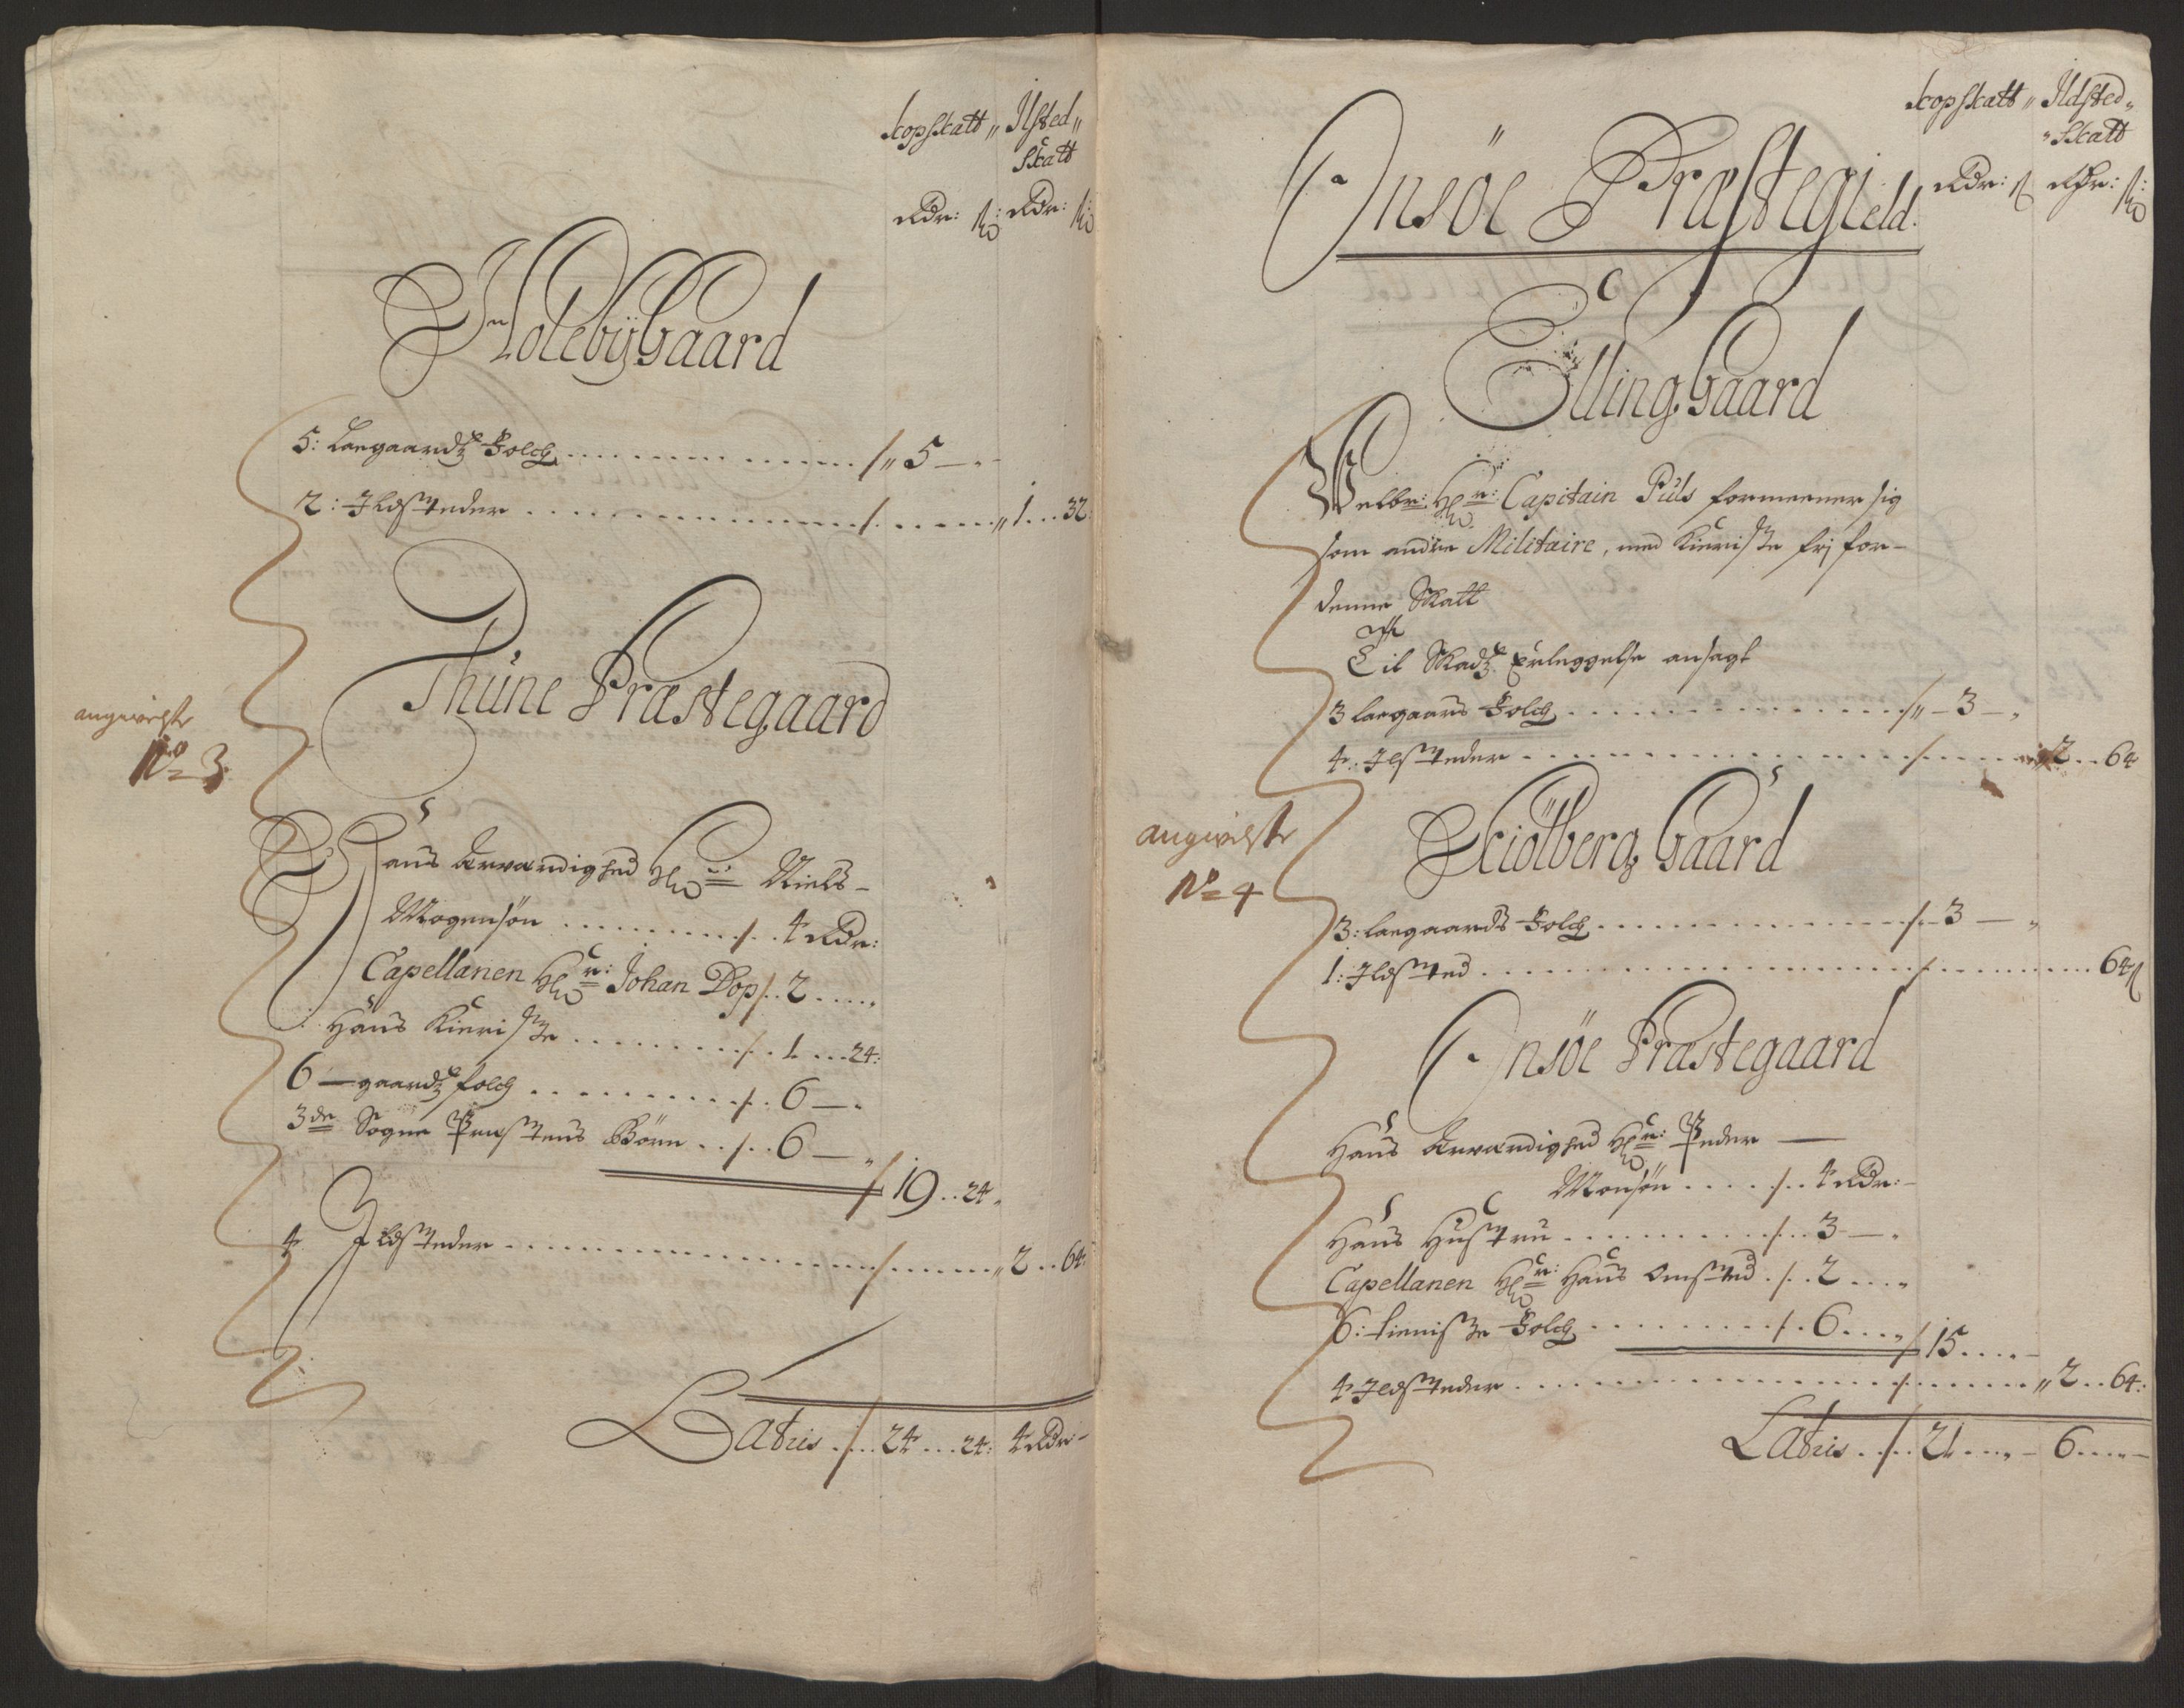 kopskatt „ Ilsted „
Skatt
Rdr: ß: Rdr: ß
HolebÿGaard
5: Laegaardz Folch ...... /„ 5 —
2: Ildsteder ...... / ...... „ 1 ... 32:
Thune Præstegaard
angiwelse
No 3.
Hans Ærværdighed Hr: Niels-
Mogensøn ...... /. 4 Rdr:
Capellanen Hr: Johan Dop /. 2 ....
Hans Kieriste ...... /. 1 ... 24:
6 — gaardz folch ...... /. 6 —
3de Sogne Præstens Börn .. /. 6 —
/ 19 .. 24 „
4 Ildsteder ...... / ...... „ 2 .. 64:
Latus ./.. 24 ... 24: 4 Rdr -
kopskatt „ Ildsted „
„ Skatt
Rdr: ß Rdr: ß
Onsöe Præstegield.
EllingGaard
Welbr: Hr: Capitain Puls formeener sig
som andre Militaire, med Kieriste frj for-
denne Skatt
Til Skadz Erleggelse ansagt
3 Laegaards Folch ...... /„ — 3 —
4: Ilsteder ...... / ...... 2 .. 64
Kiölberg Gaard
angiwelse
No 4
3: Laegaards Folch ...... /. — 3 —
1: Ildsted ...... / ...... 64 ß
Onsöe Præstegaard
Hans Ærværdighed Hr: Peder —
Monsøn ..... /.. 4 Rdr: -
Hans Hustru ...... /... 3 —
Capellanen Hr: Hans Omsted ./. 2 ....
6: tieniste Folch ...... /. 6 .... / 15 ....
4 Ildsteder ...... / ...... „ 2 .. 64:
Latus ../.. 21 .... 6 ....